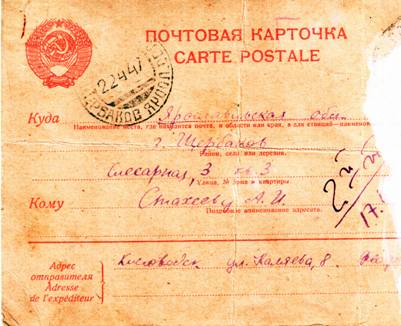 ПОЧТОВАЯ КАРТОЧКА
CARTE POSTALE
22 4 47
ЩЕРБАКОВ ЯРОСЛ
Куда Ярославльская обл.
Наименование места, где находится почта, и области или края, а для станций—наименов
г. Щербаков
Район, село или деревня.
Слесарная, 3 кв. 3
Улица, № дома и квартиры
Кому Стахееву А. И.
Подробное наименование адресата.
2й
17.
Адрес
отправителя
Adresse
de l'expéditeur
Кисловодск ул. Каляева, 8